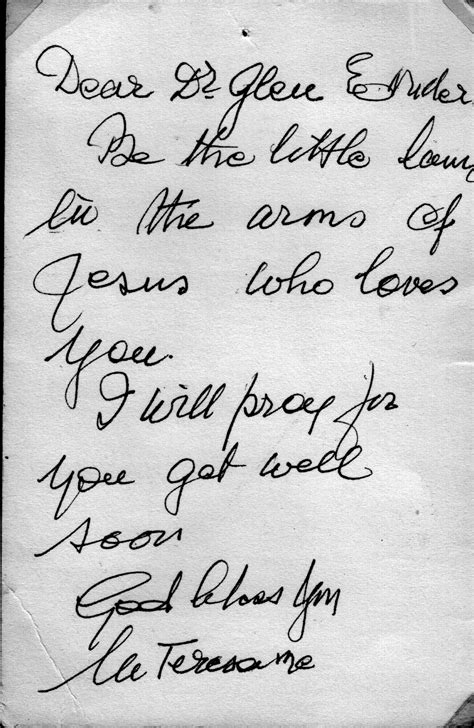 Dear Dr Glen E.
Be the little lam
in the arms of
Jesus who loves
you.
I will pray for
you get well
soon
God bless you
M Teresa mc